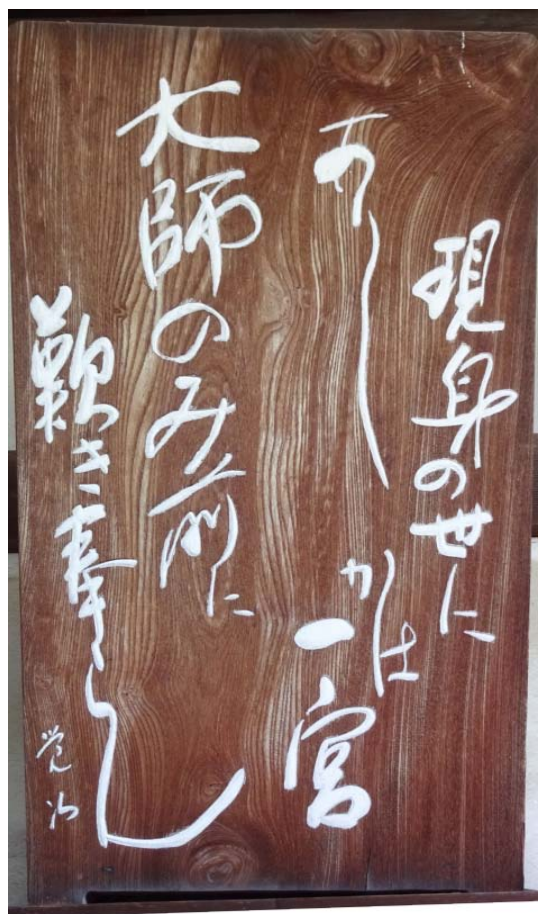 現身の世に
かは
一宮
大師のみ前に
歎き奉らん
覚